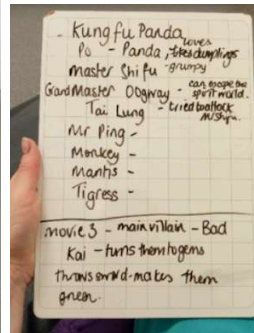 - Kung fu Panda
loves
Po - Panda, likes dumplings
master Shifu - grumpy
Grand Master Oogway - can escape the spirit world.
Tai Lung - tried to attack
Mr Ping -
Monkey -
Mantis -
Tigress -
movie 3 - main villain - Bad
Kai - turns them to gems
them
green.